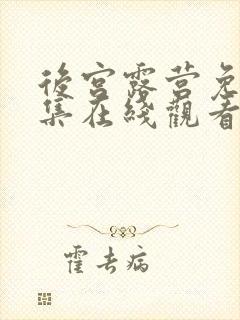 後宮露营免
集在綫觀看
霍去病